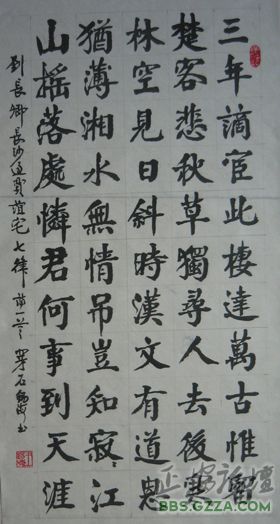 三年謫宦此棲遲萬古惟留
楚客悲秋草獨尋人去後寒
林空見日斜時漢文有道恩
猶薄湘水無情吊豈知寂々江
山摇落處憐君何事到天涯
劉長卿長沙過賈誼宅七律詩一首
BBS.GZZA.COM